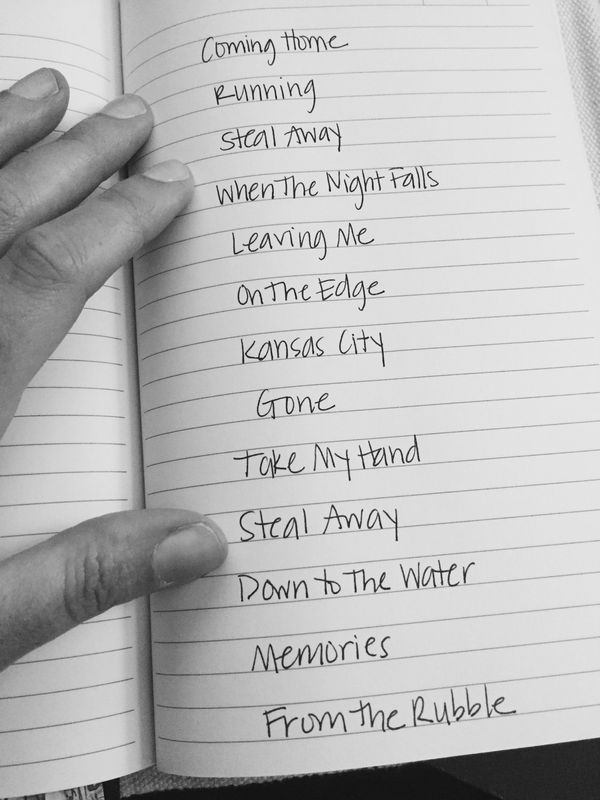 Coming Home
Running
Steal Away
When The Night Falls
Leaving Me
On The Edge
Kansas City
Gone
Take My Hand
Steal Away
Down to The Water
Memories
From The Rubble